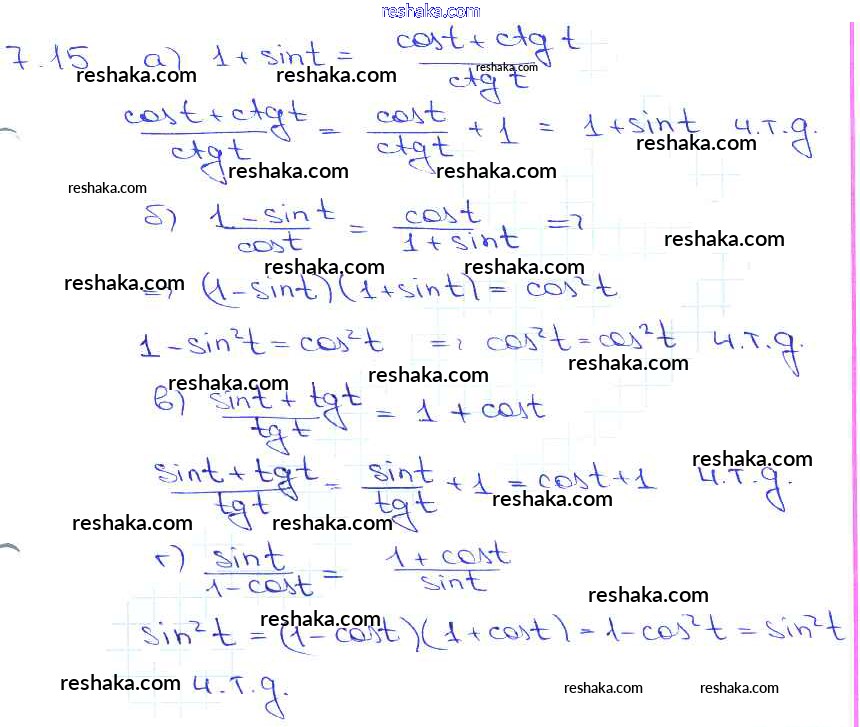 reshaka.com
7.15 а) 1 + sin t = (cos t + ctg t)/(ctg t)
reshaka.com reshaka.com reshaka.com
(cos t + ctg t)/(ctg t) = (cos t)/(ctg t) + 1 = 1 + sin t ч.т.д.
reshaka.com
reshaka.com reshaka.com
reshaka.com
б) (1 - sin t)/(cos t) = (cos t)/(1 + sin t) =>
reshaka.com
reshaka.com reshaka.com
reshaka.com
=> (1 - sin t)(1 + sin t) = cos² t
1 - sin² t = cos² t => cos² t = cos² t ч.т.д.
reshaka.com
reshaka.com reshaka.com
в) (sin t + tg t)/(tg t) = 1 + cos t
reshaka.com
(sin t + tg t)/(tg t) = (sin t)/(tg t) + 1 = cos t + 1 ч.т.д.
reshaka.com
reshaka.com reshaka.com
г) (sin t)/(1 - cos t) = (1 + cos t)/(sin t)
reshaka.com
reshaka.com
sin² t = (1 - cos t)(1 + cos t) = 1 - cos² t = sin² t
reshaka.com ч.т.д. reshaka.com reshaka.com